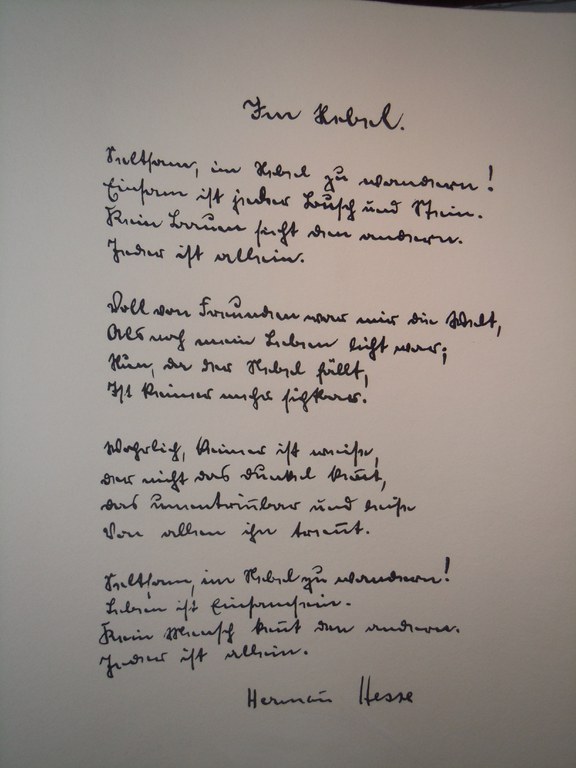 Im Nebel.
Seltsam, im Nebel zu wandern!
Einsam ist jeder Busch und Stein.
Kein Baum sieht den andern.
Jeder ist allein.
Voll von Freunden war mir die Welt,
Als noch mein Leben licht war;
Nun, da der Nebel fällt,
Ist keiner mehr sichtbar.
Wahrlich, keiner ist weise,
der nicht das dunkel ken̄t,
das unentrin̄bar und leise
Von allen ihn tren̄t.
Seltsam, im Nebel zu wandern!
Leben ist Einsamsein.
Kein Mensch ken̄t den andern.
Jeder ist allein.
Herman̄ Hesse